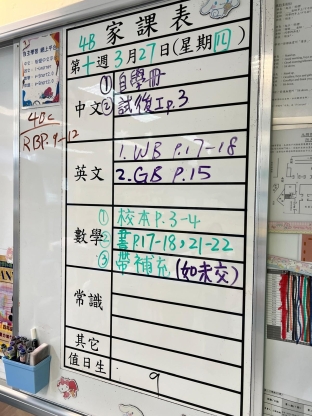 4B 家課表
第十週 3月27日(星期四)
中文 ① 自學冊
② 試後工p.3
英文 1. WB P.17-18
2. GB P.15
數學 ① 校本 p.3-4
② 書p.17-18,21-22
③ 帶補充(如未交)
常識
其它
值日生 9
40c
RBP. 9-12